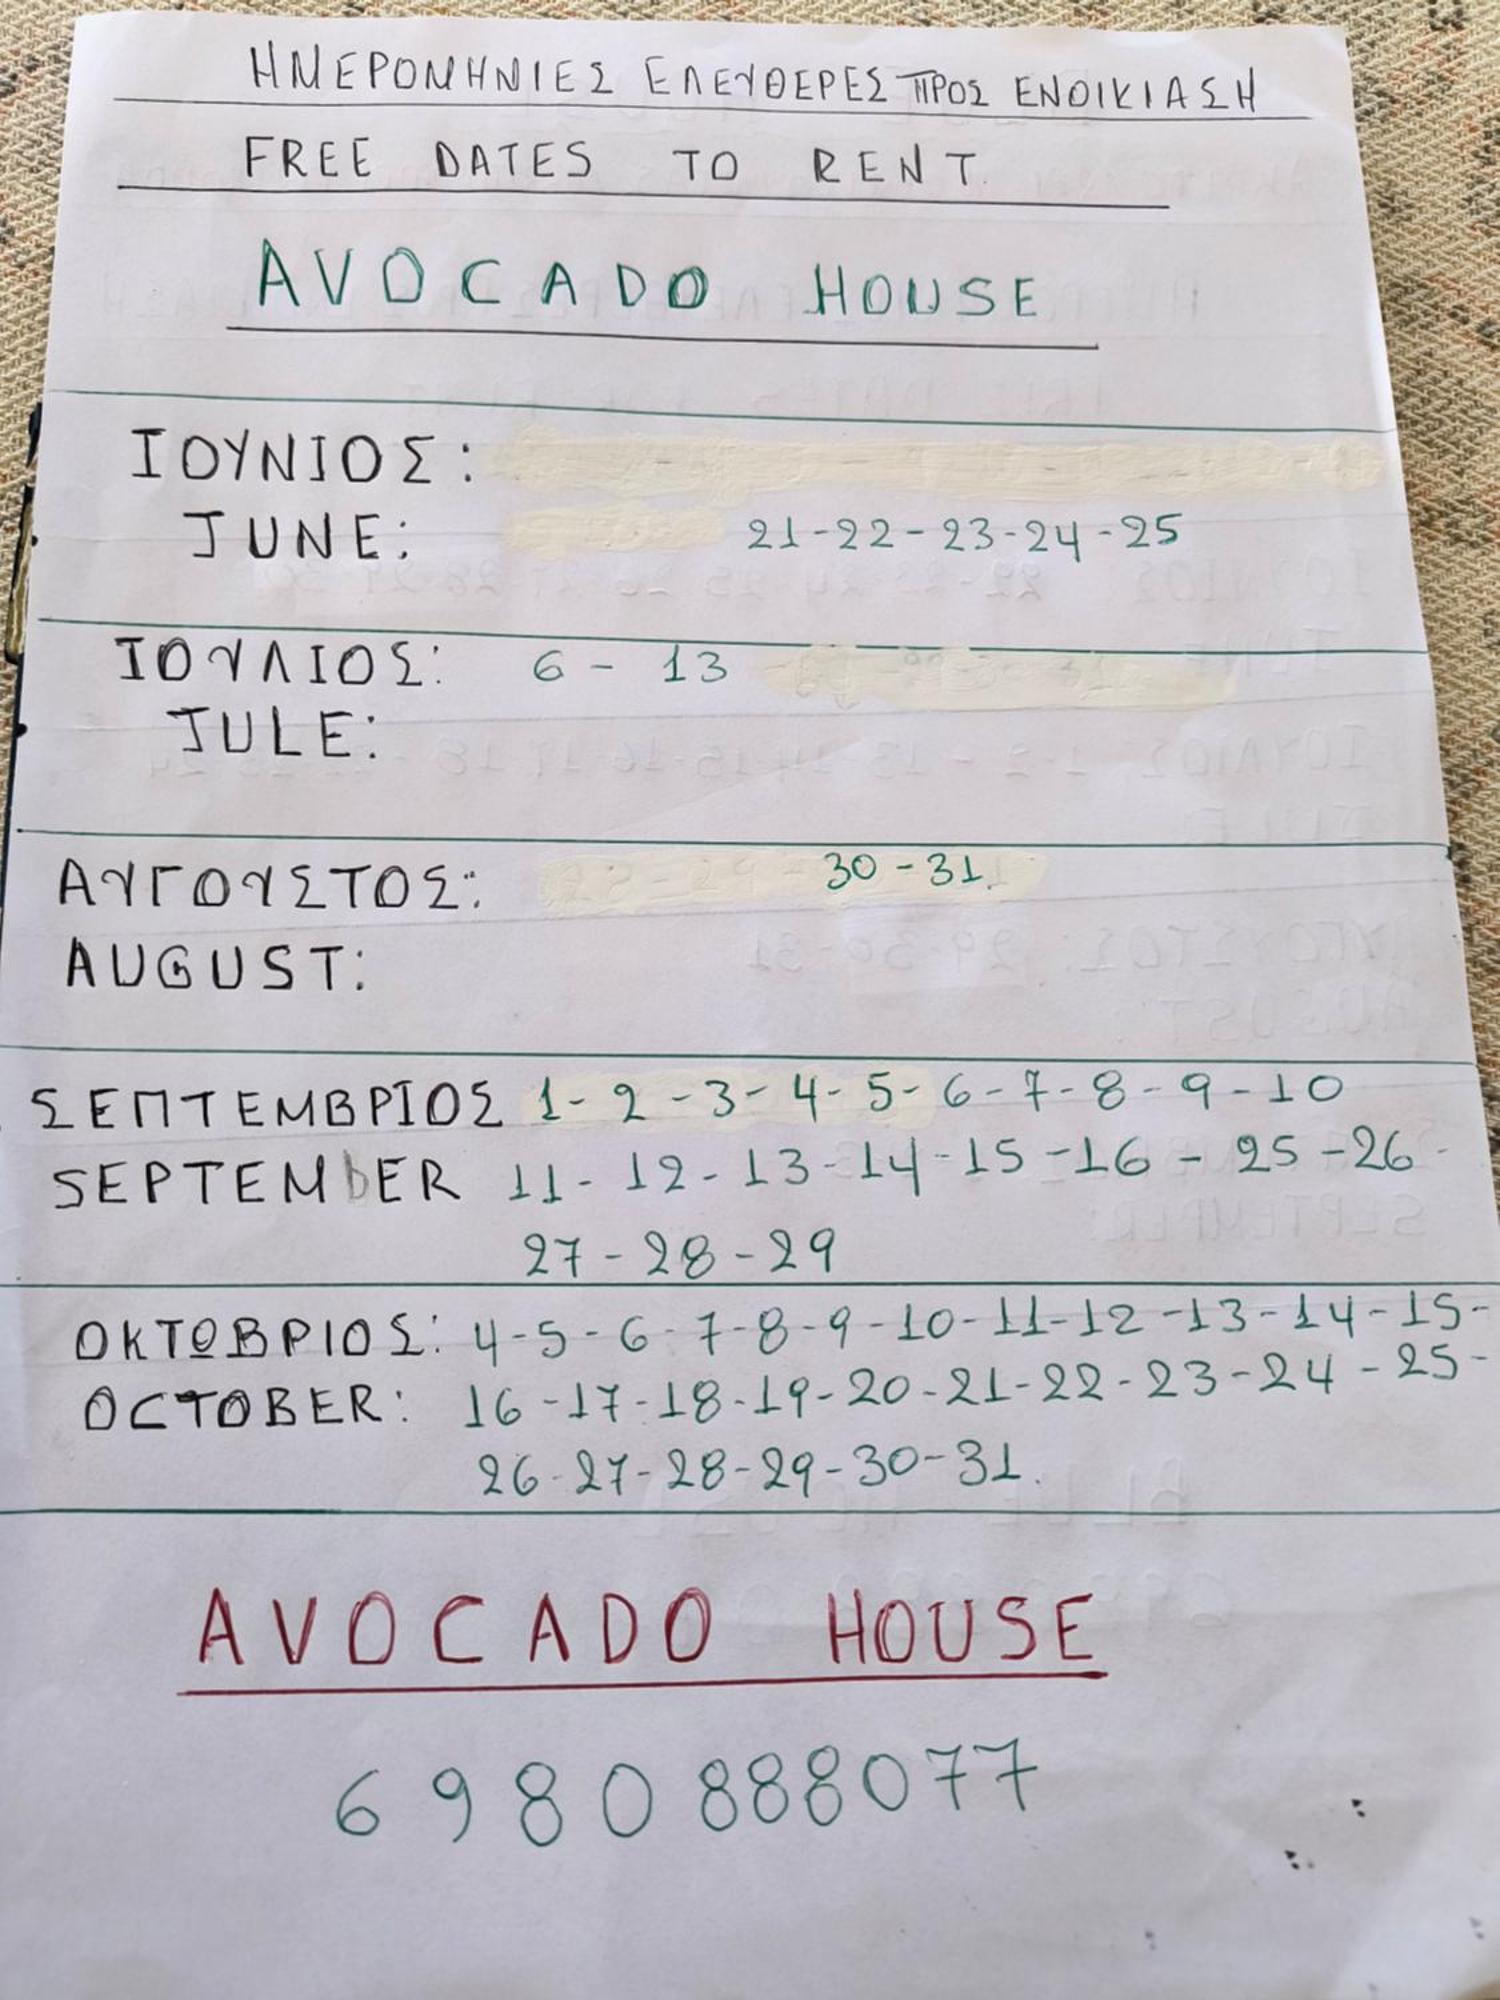 ΗΜΕΡΟΜΗΝΙΕΣ ΕΛΕΥΘΕΡΕΣ ΠΡΟΣ ΕΝΟΙΚΙΑΣΗ
FREE DATES TO RENT.
AVOCADO HOUSE
ΙΟΥΝΙΟΣ:
JUNE: 21-22-23-24-25
ΙΟΥΛΙΟΣ: 6 - 13
JULE:
ΑΥΓΟΥΣΤΟΣ: 30-31.
AUGUST:
ΣΕΠΤΕΜΒΡΙΟΣ 1-2-3-4-5-6-7-8-9-10
SEPTEMbER 11-12-13-14-15-16-25-26-
27-28-29
ΟΚΤΩΒΡΙΟΣ: 4-5-6-7-8-9-10-11-12-13-14-15-
OCTOBER: 16-17-18-19-20-21-22-23-24-25-
26-27-28-29-30-31.
AVOCADO HOUSE
6980888077